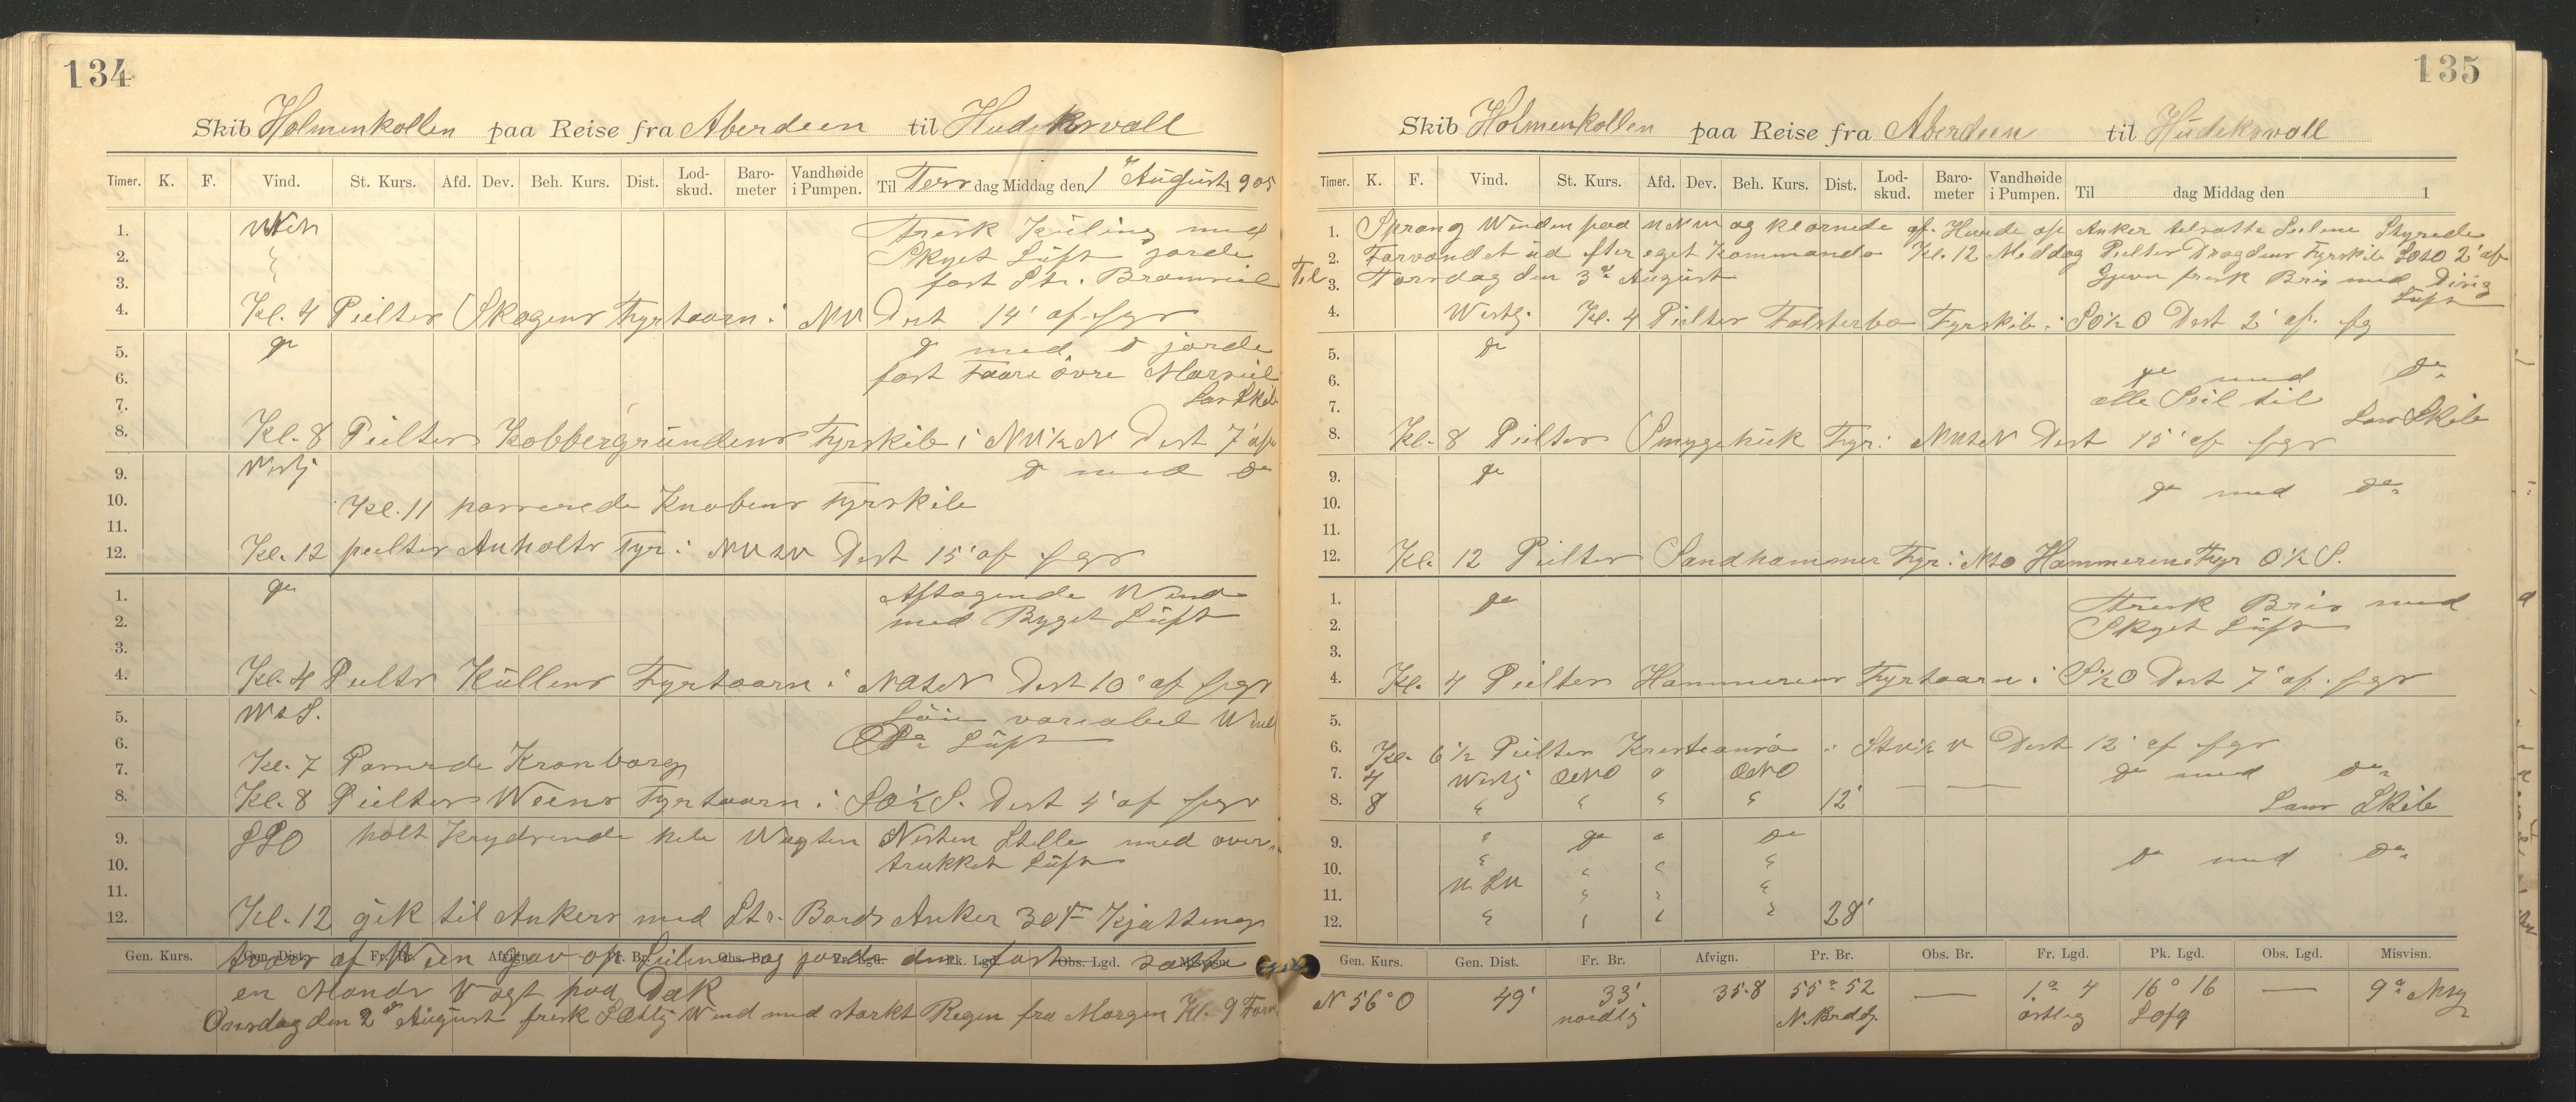 134
Skib Holmenkollen paa Reise fra Aberdeen til Hudikswall
Timer. K. F. Vind. St. Kurs. Afd. Dev. Beh. Kurs. Dist. Lod-skud. Baro-meter Vandhøide i Pumpen. Til Tersdag Middag den 1 August 1905
1. Fresk Kúling med
2. Skyet Lúft jorde
3. fast Str. Bramseil
4. Kl. 4 Peilter Skagens Fyrtaarn i NW Dist 14' af fgr
5. do do med do jorde
6. fast Faare övre Marseil
7. Lar Skib
8. Kl. 8 Peilter Kobbergrúndens Fyrskib i NW½N Dist 7'
9. Vestlj do med do
10. Kl. 11 passerede Knobens Fyrskib
11.
12. Kl. 12 peilter Anholts Fyr i Dist 15' af fgr
1. do Aftagende Wind
2. med Byget Lúft
3.
4. Kl. 4 Peilter Kúllens Fyrtaarn i Dist 10' af fgr
5. WtS. variabel Wind
6. Lúft
7. Kl. 7 Passerde Kronborg
8. Kl. 8 Peilter Weens Fyrtaarn i SO½S. Dist 4' af fgr
9. SSO holt Krydsende hele Wagten Nesten Stelle med over-
10. trukket Lúft
11.
12. Kl. 12 gik til Ankers med Str. Bords Anker 30 F Kjetting
Gen. Kurs. Gen. Dist. Fr. Br. Afvign. Pr. Br. Obs. Br. Fr. Lgd. Pk. Lgd. Obs. Lgd. Misvisn.
tvars af Ween gav op Seilene og jorde dem fast satte
en Mands Vagt paa Dæk
Onsdag den 2 August frisk Wind med starkt Regen fra Morgen Kl. 9 Form
135
Skib Holmenkollen paa Reise fra Aberdeen til Húdikswall
Timer. K. F. Vind. St. Kurs. Afd. Dev. Beh. Kurs. Dist. Lod-skud. Baro-meter Vandhøide i Pumpen. Til dag Middag den 1
1. Sprang Winden paa WNW og klarnede af. Hivde op Anker tilsatte Seilene Styrede
2. Farvandet úd efter eget Kommando Kl. 12 Meddag Peilter Drogdens Fyrskib 2' af
Til 3. Torsdag den 3 August Jjevn frisk Bris med Disig
Lúft
4. Westlj. Kl. 4 Peilter Falsterbo Fyrskib i SO½O Dist 2' af fg
5. do
6. do med do
7. alle Seil til
Lar Skib
8. Kl. 8 Peilter Smygehúk Fyr i Dist 15' af fgr
9. do
10. do med do
11.
12. Kl. 12 Peilter Sandhammer Fyr i NtO Hammerens Fyr O½S.
1. do Fresk Bris med
2. Skyet Lúft
3.
4. Kl. 4 Peilter Hammerens Fyrtaarn i S½O Dist 7' af fgr
5.
6. Kl. 6½ Peilter Kresteansö i Dist 12' af fgr
7. 4 Westlj do med do
8. 8 12' Lens Skib
9. do do
10. do med do
11.
12. 28'
Gen. Kurs. Gen. Dist. Fr. Br. Afvign. Pr. Br. Obs. Br. Fr. Lgd. Pk. Lgd. Obs. Lgd. Misvisn.
N 56° O 49' 33' 35.8 55° 52 — 1° 4 16° 16 —
nordlig östlig